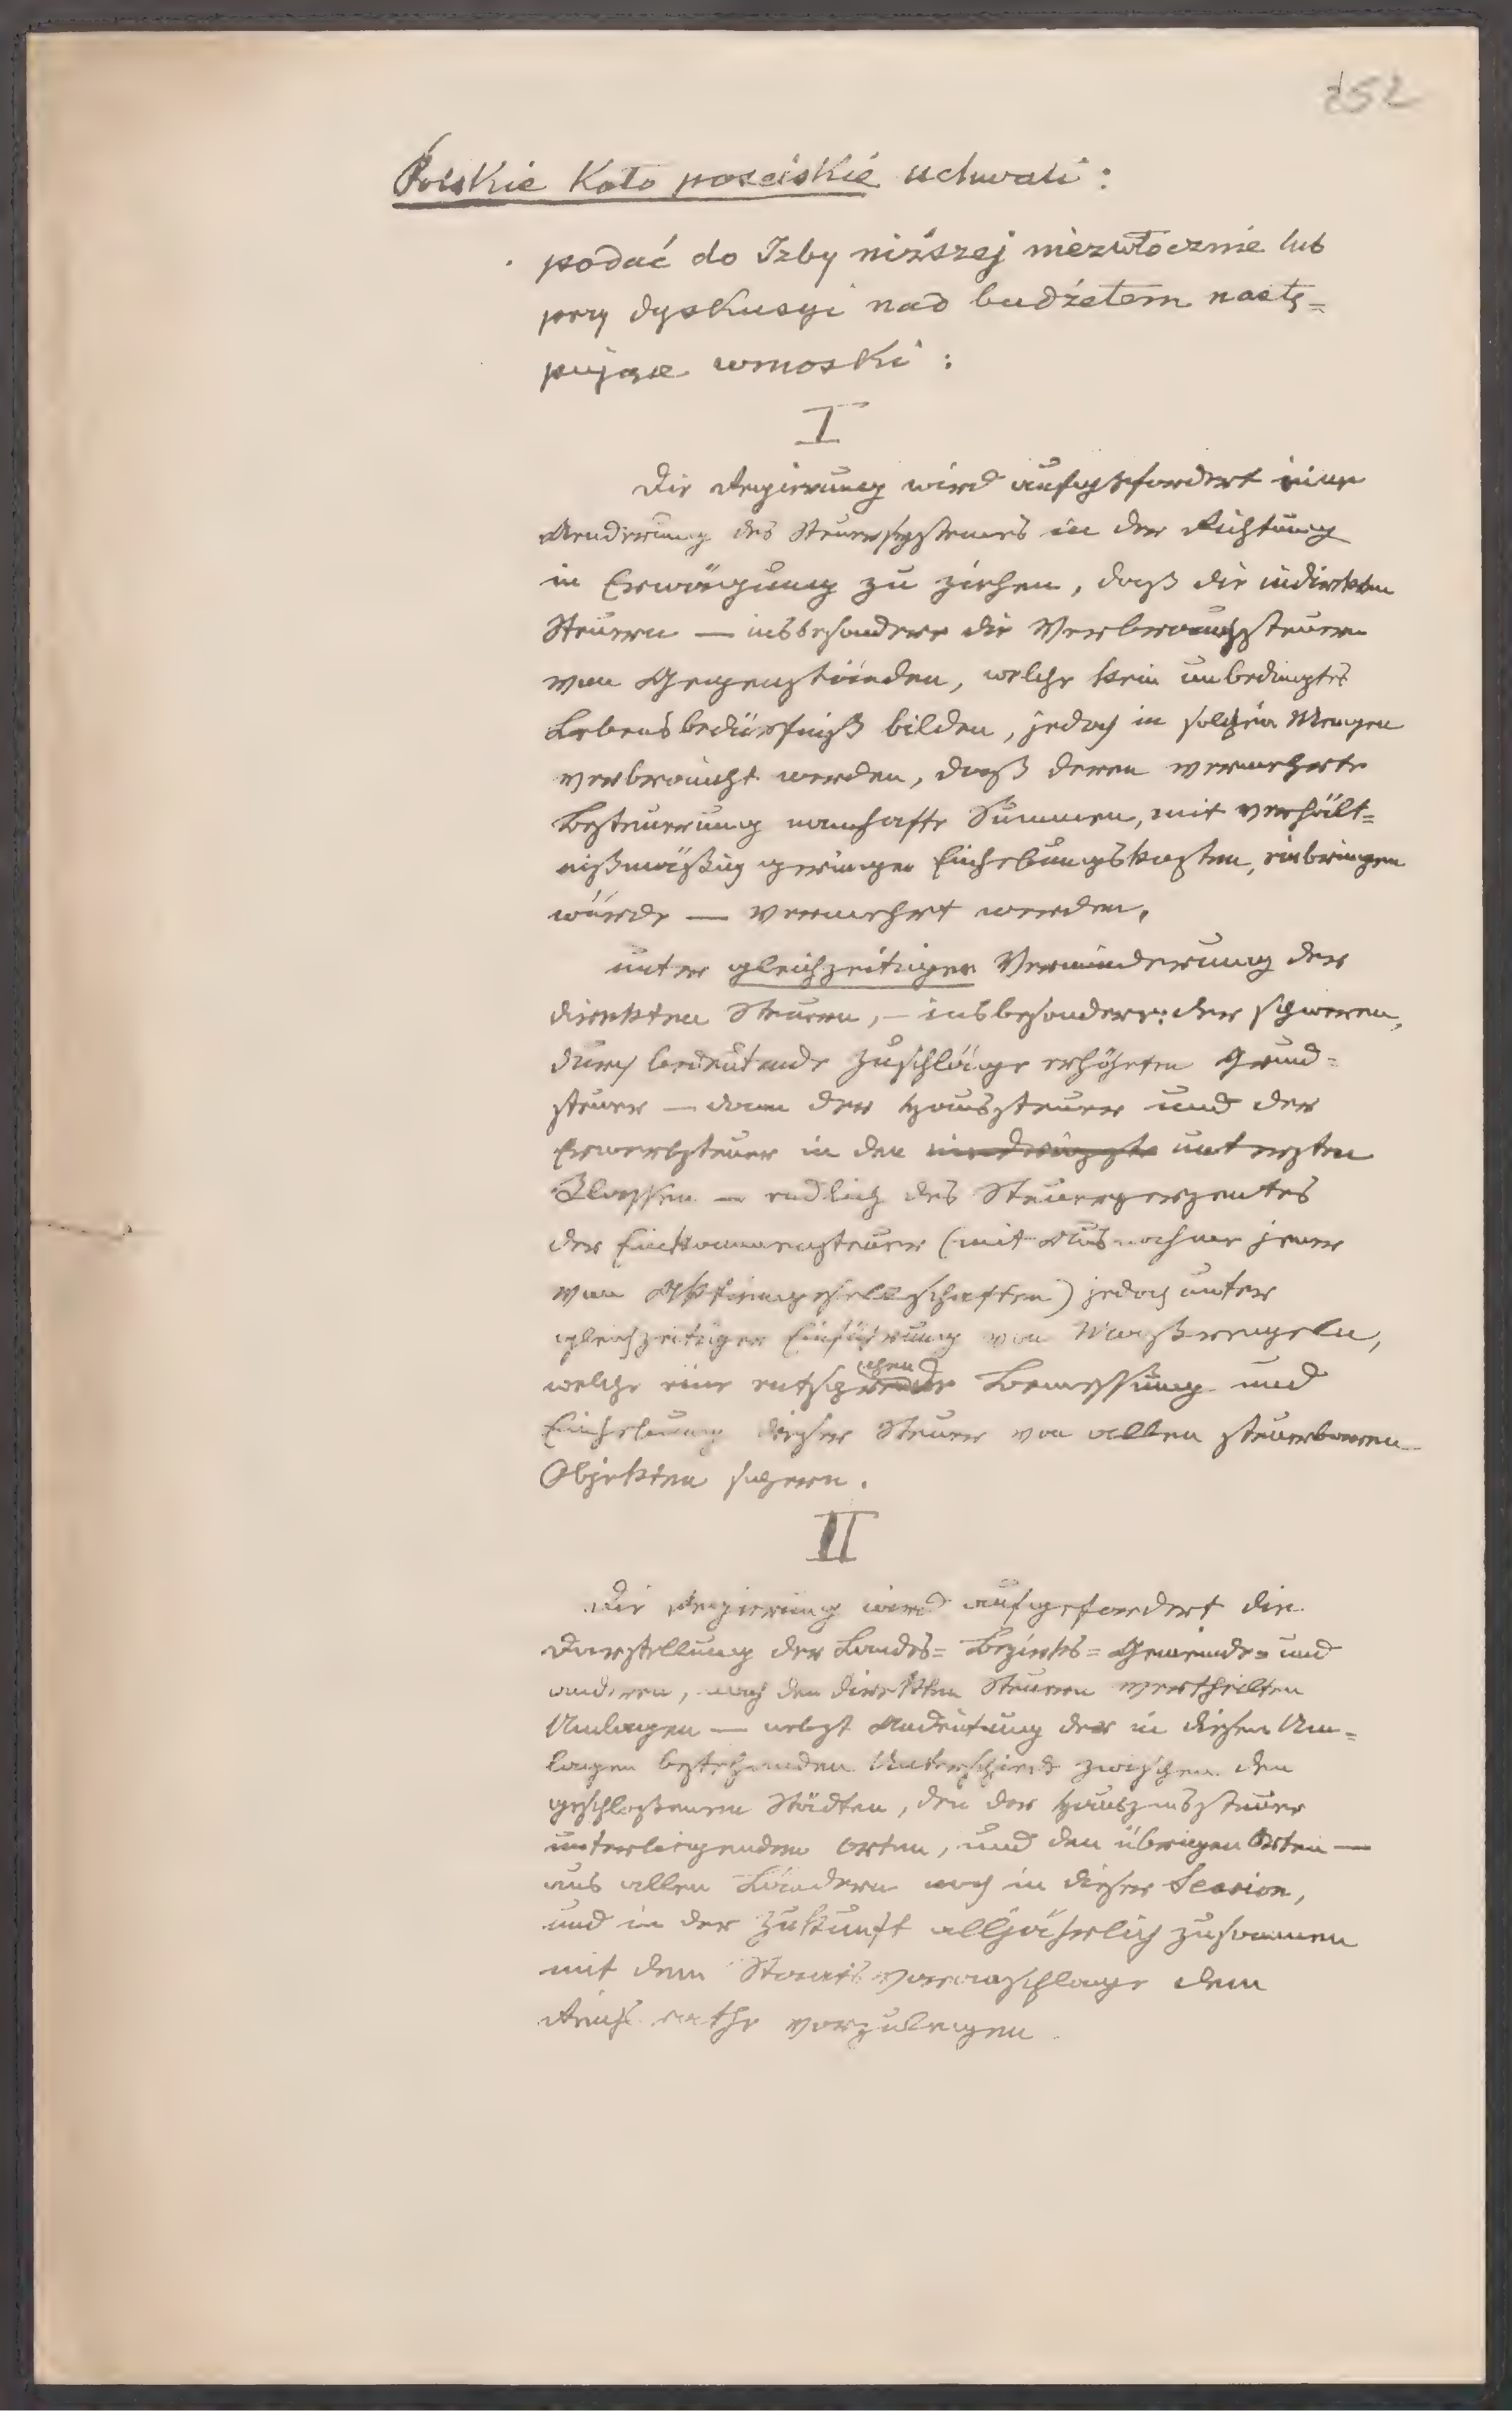 252
Polskie Koło poselskie uchwali:
podać do Izby niższej niezwłocznie lub
przy dyskusyi nad budżetem nastę=
pujące wnioski:
I
Die Regierung wird aufgefordert eine
Aenderung des Steuersystemes in der Richtung
in Erwägung zu ziehen, daß die indirekten
Steuern — insbesondere die Verbrauchssteuern
von Gegenständen, welche kein unbedingtes
Lebensbedürfniß bilden, jedoch in solchen Mengen
verbraucht werden, daß deren vermehrte
Besteuerung namhafte Summen, mit verhält=
nißmäßig geringen Einhebungskosten, einbringen
würde — vermehrt werden,
unter gleichzeitiger Verminderung der
direkten Steuern, — insbesondere: der schweren,
durch bedeutende Zuschläge erhöhten Grund=
steuer — dann der Haussteuer und der
Erwerbsteuer in den niedrigste untersten
Klassen — endlich des Steuerperzentes
der Einkommensteuer (mit Ausnahme jener
von Aktiengesellschaften) jedoch unter
gleichzeitiger Einführung von Maßregeln,
welche eine entsprechende Bemessung und
Einhebung dieser Steuer von allen steuerbaren
Objekten sichern.
II
Die Regierung wird aufgefordert die
Darstellung der Landes= Bezirks= Gemeinde= und
anderen, nach den direkten Steuern vertheilten
Umlagen — nebst Andeutung der in diesen Um=
lagen bestehenden Unterschiede zwischen den
geschloßenen Städten, den der Hauszinssteuer
unterliegenden Orten, und den übrigen Orten —
aus allen Ländern noch in dieser Session,
und in der Zukunft alljährlich zusammen
mit dem Staatsvoranschlage dem
Reichsrathe vorzulegen.